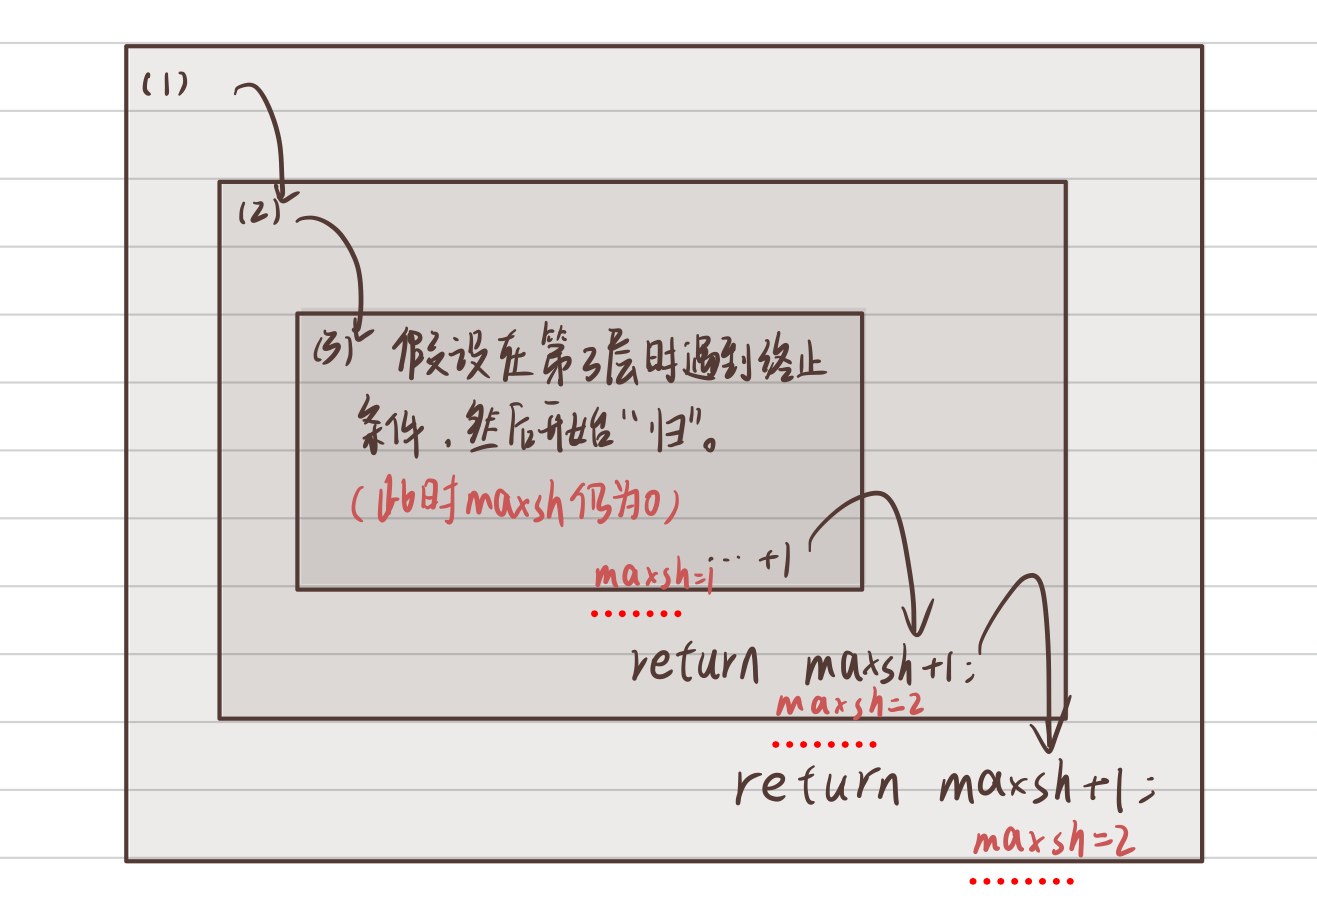 (1)
(2)
(3) 假设在第3层时遇到终止
条件.然后开始“归”。
(此时maxsh仍为0)
maxsh=1 … +1
return maxsh+1;
maxsh=2
return maxsh+1;
maxsh=2